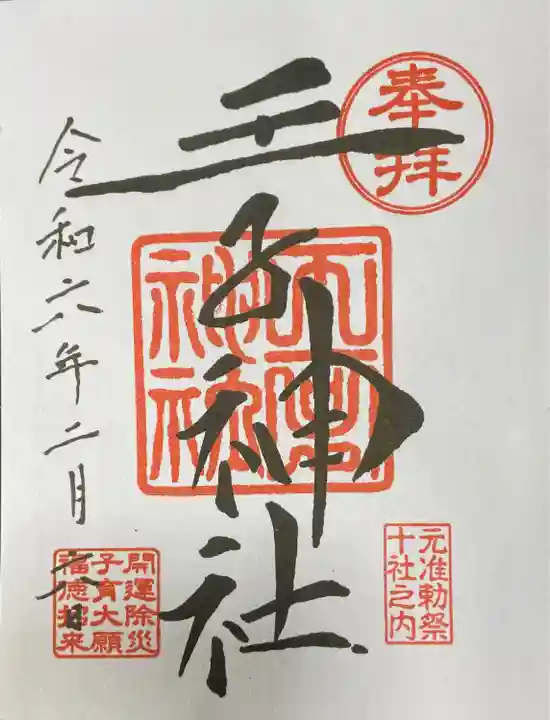 奉拝
王子神社
元准勅祭
十社之内
開運除災
子育大願
福徳招来
令和六年二月六日